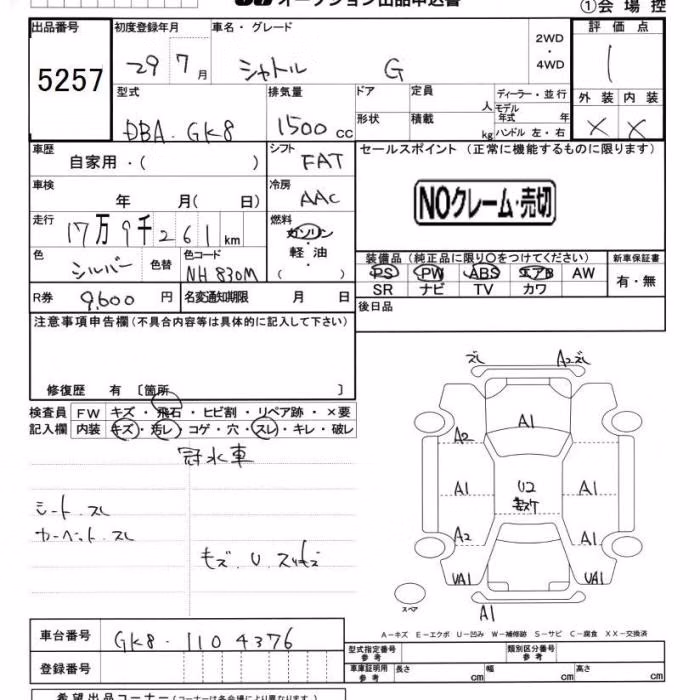 オークション出品申込書 ①会場控
出品番号 初度登録年月 車名・グレード 2WD・4WD 評価点
5257 29 7月 シャトル G 1
外装 内装
X X
型式 排気量 ドア 定員 人 ディーラー・並行
DBA・GK8 1500cc 形状 積載 kg モデル年式 年
ハンドル 左・右
車歴 自家用・( ) シフト FAT セールスポイント(正常に機能するものに限ります)
車検 年 月(日) 冷房 AAC NOクレーム・売切
走行 17万9千261km 燃料 ガソリン・軽油 ( )
色 シルバー 色替 色コード NH830M
装備品(純正品に限り○をつけてください) 新車保証書
PS PW ABS エアB AW 有・無
SR ナビ TV カワ
R券 9,600円 名変通知期限 月 日 後日品
注意事項申告欄(不具合内容等は具体的に記入して下さい)
修復歴 有〔箇所 〕
検査員記入欄 FW キズ・飛石・ヒビ割・リペア跡・×要
内装 キズ・汚レ・コゲ・穴・スレ・キレ・破レ
冠水車
シート スレ
カーペット スレ
モズ、U、スリキズ
ズレ A2ズレ
A1
A2
A1 A1
A2 A1
UA1 UA1
A1
スペア
A-キズ E-エクボ U-凹み W-補修跡 S-サビ C-腐食 XX-交換済
車台番号 GK8-1104376
登録番号
型式指定番号 参考 類別区分番号 参考
車庫証明用 参考 長さ cm 幅 cm 高さ cm
希望出品コーナー(コーナーは各会場により異なります)